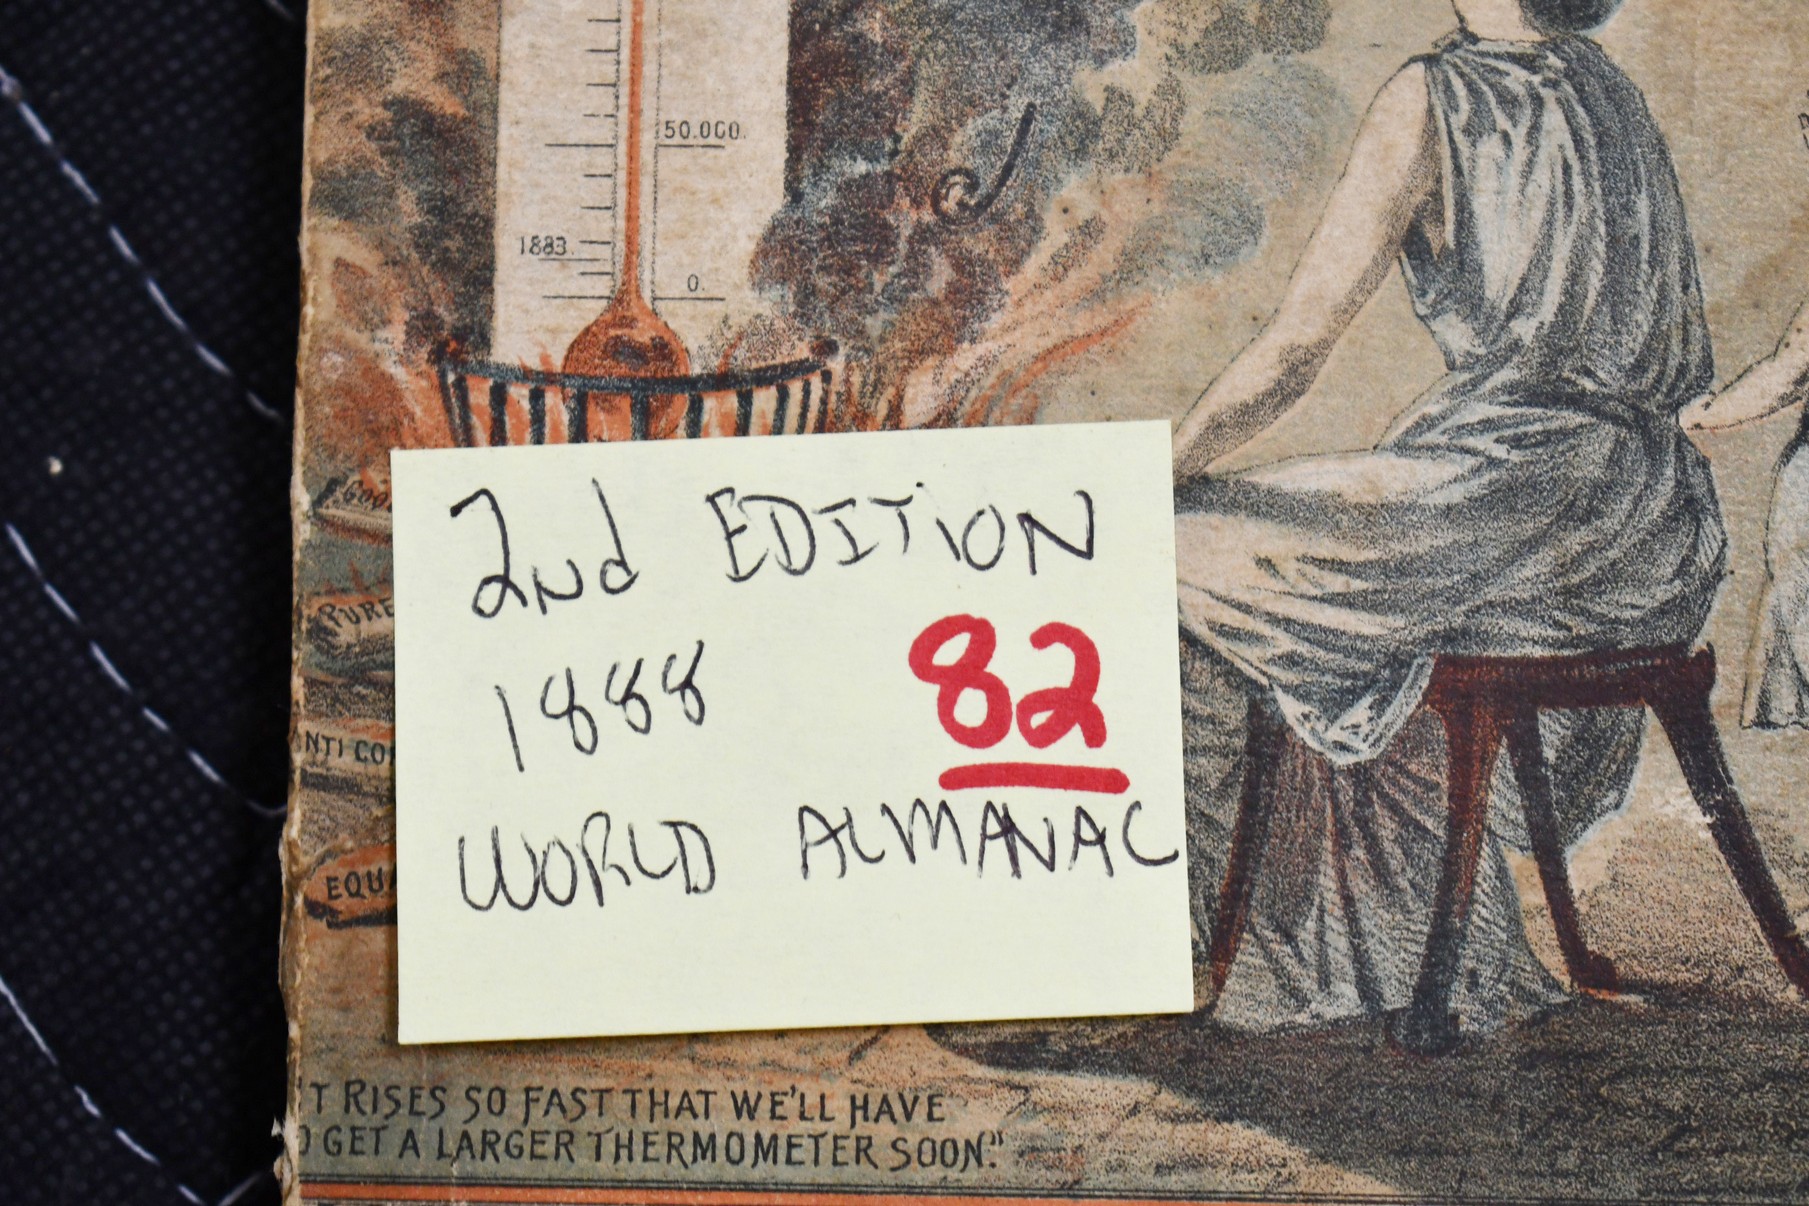 50.000.
1883.
0.
PURE
NTI CO
EQUA
2nd EDITION
1888 82
WORLD ALMANAC
T RISES SO FAST THAT WE'LL HAVE
O GET A LARGER THERMOMETER SOON."